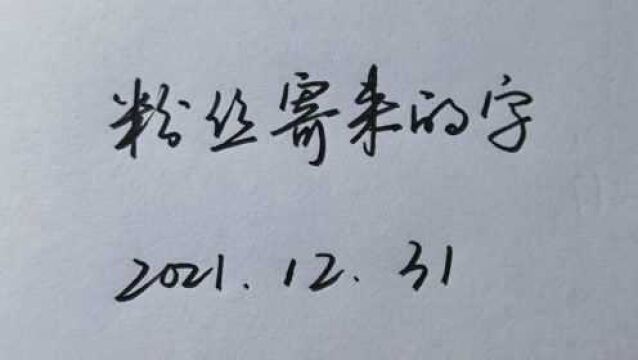 粉丝寄来的字
2021.12.31